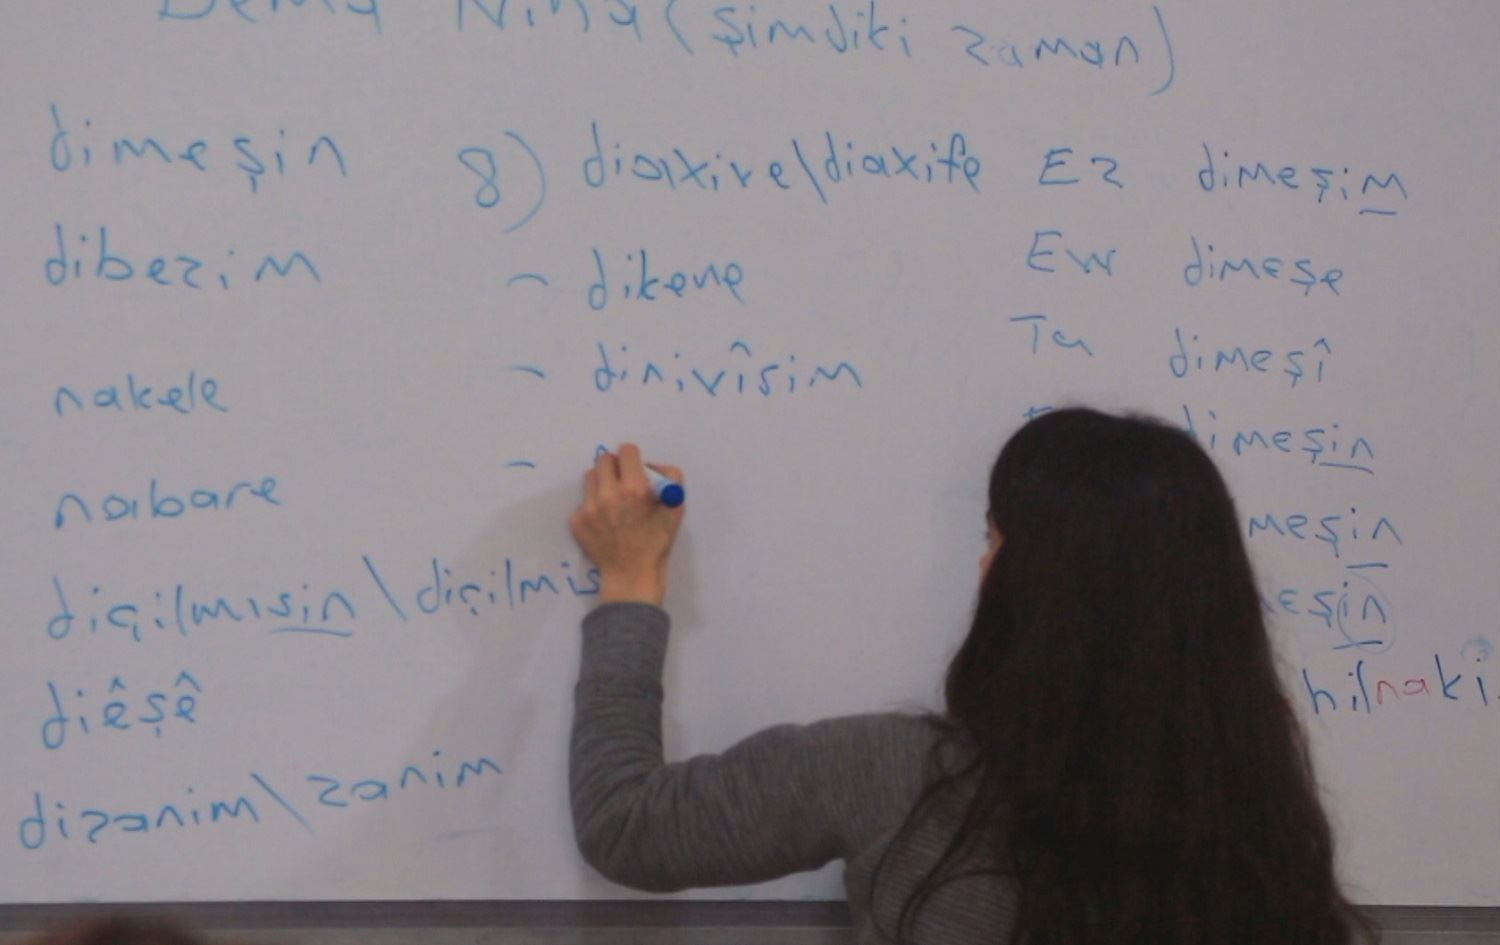 Dema Niha (şimdiki zaman)
dimeşin
dibezim
nakele
nabare
diçilmısin\diçilmis
diêşê
dizanim\zanim
8) diaxive\diaxife
- dikene
- dinivîsim
-
Ez dimeşim
Ew dimeşe
Tu dimeşî
dimeşin
meşin
eşin
hilnaki